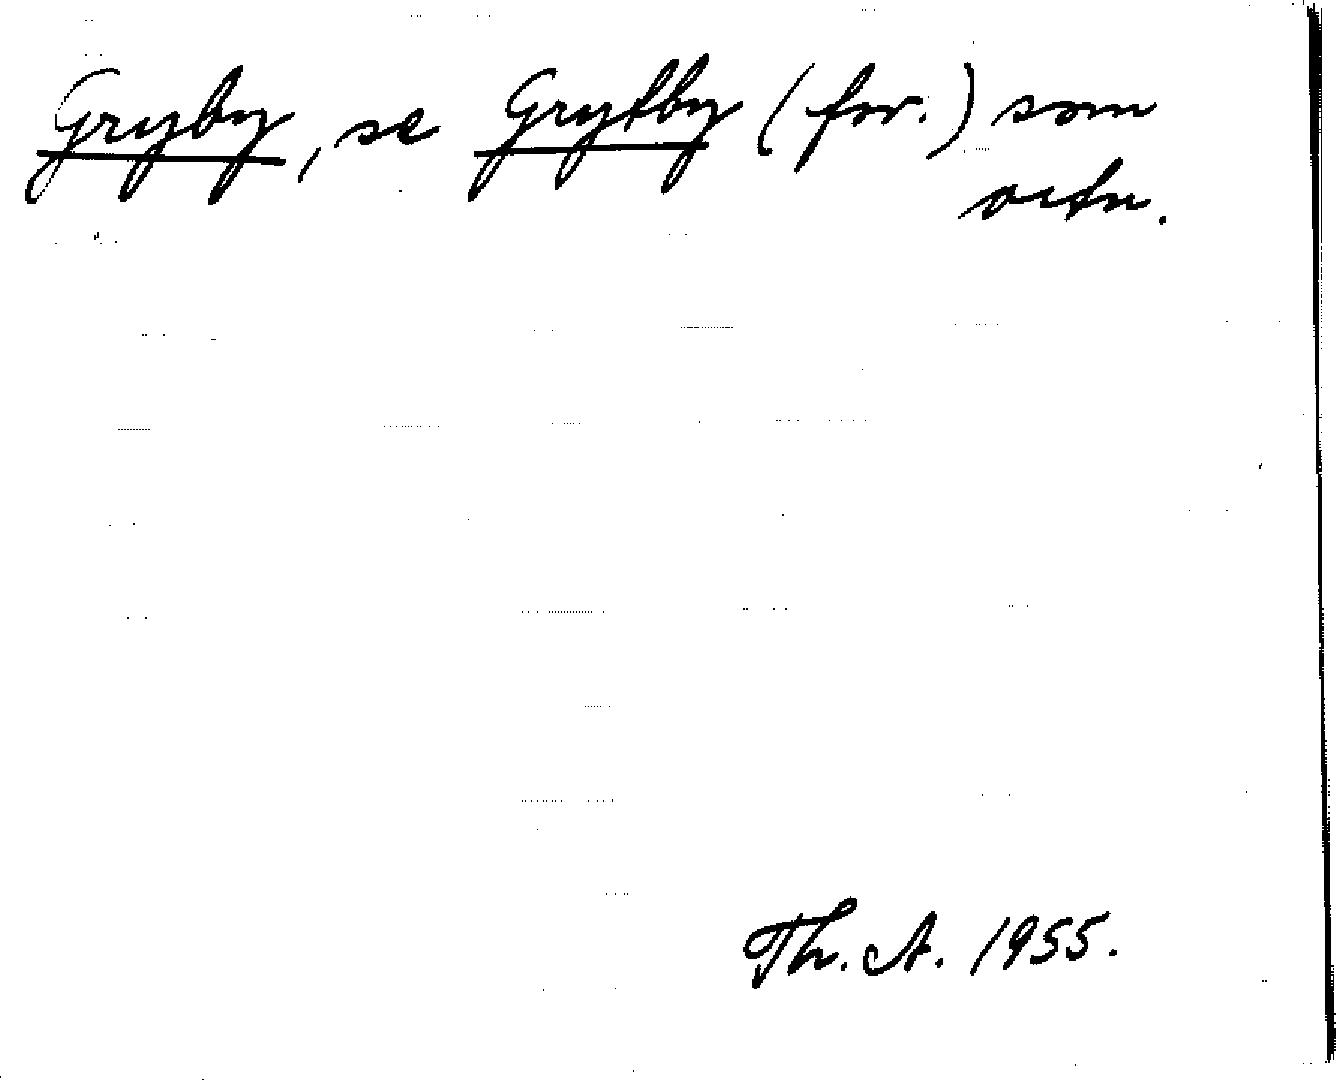 Gryby, se Grytby (for.) som
ortn.
Th. A. 1955.